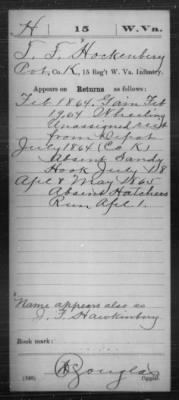 H 15 W. Va.
T. T. Hockenbery
Pvt, Co. K, 15 Reg't W. Va. Infantry.
Appears on Returns as follows:
Feb 1864. Gain Feb
1904 Wheeling
Unassigned
from Depot
July 1864 (Co K)
Absent Sandy
Hook July 18
Apl & May 1865
Absent Hatchers
Run Apl 1.
Name appears also as
J. F. Hawkinbury
Book mark:
(546)
Douglas
Copyist.